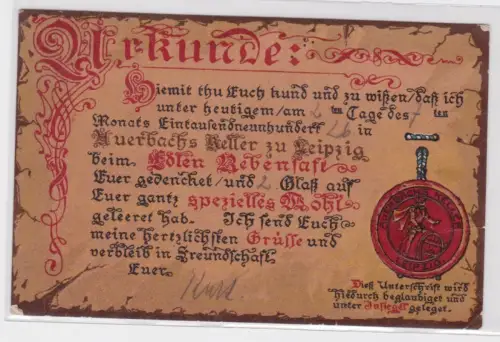 Urkunde:
Hiemit thu Euch kund und zu wißen/daß ich
unter heutigem/am 2 ten Tage des 7 ten
Monats Eintausendneunhundert 26 in
Auerbachs Keller zu Leipzig
beim Edlen Rebensaft
Euer gedencket/und 2 Glaß auf
Euer gantz spezielles Wohl
geleeret hab. Ich send Euch
meine hertzlichsten Grüsse und
verbleib in Freundschaft
Euer
Kurt.
AUERBACHS KELLER
LEIPZIG
Dieß Unterschrift wird
hiedurch beglaubiget und
unter Insiegel geleget.